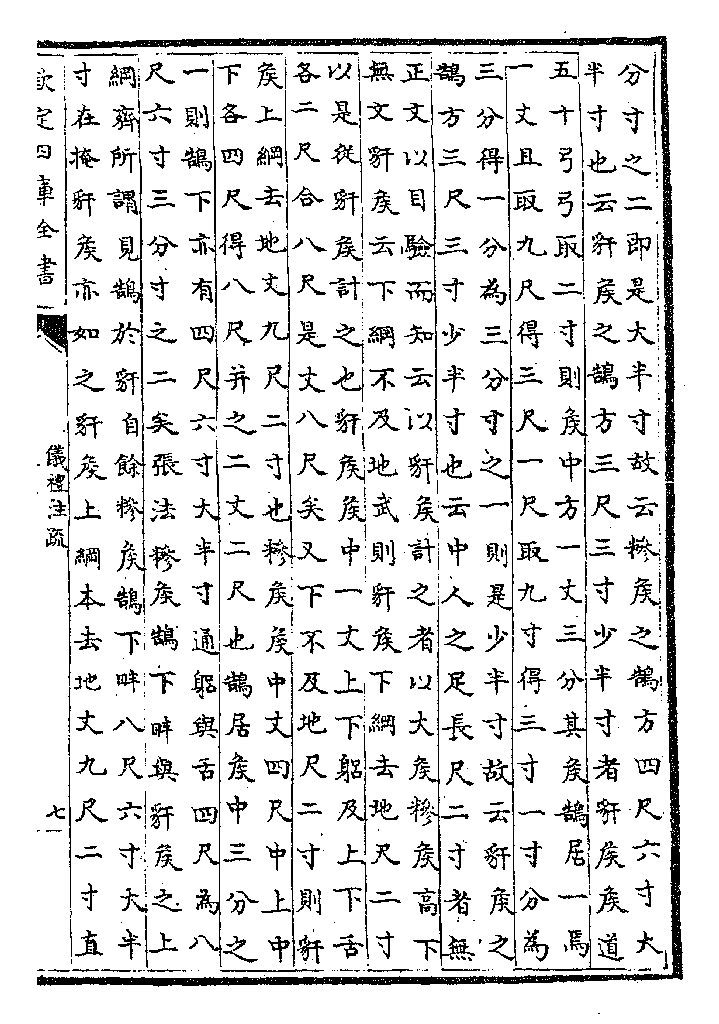 分寸之二即是大半寸故云糝矦之鵠方四尺六寸大
半寸也云豻矦之鵠方三尺三寸少半寸者豻矦矦道
五十弓弓取二寸則矦中方一丈三分其矦鵠居一焉
一丈且取九尺得三尺一尺取九寸得三寸一寸分為
三分得一分為三分寸之一則是少半寸故云豻矦之
鵠方三尺三寸少半寸也云中人之足長尺二寸者無
正文以目驗而知云以豻矦計之者以大矦糝矦髙下
無文豻矦云下綱不及地武則豻矦下綱去地尺二寸
以是從豻矦計之也豻矦矦中一丈上下躬及上下舌
各二尺合八尺是丈八尺矣又下不及地尺二寸則豻
矦上綱去地丈九尺二寸也糝矦矦中丈四尺中上中
下各四尺得八尺并之二丈二尺也鵠居矦中三分之
一則鵠下亦有四尺六寸大半寸通躬與舌四尺為八
尺六寸三分寸之二矣張法糝矦鵠下畔與豻矦之上
綱齊所謂見鵠於豻自餘糝矦鵠下畔八尺六寸大半
寸在掩豻矦亦如之豻矦上綱本去地丈九尺二寸直
欽定四庫全書
儀禮注疏
七